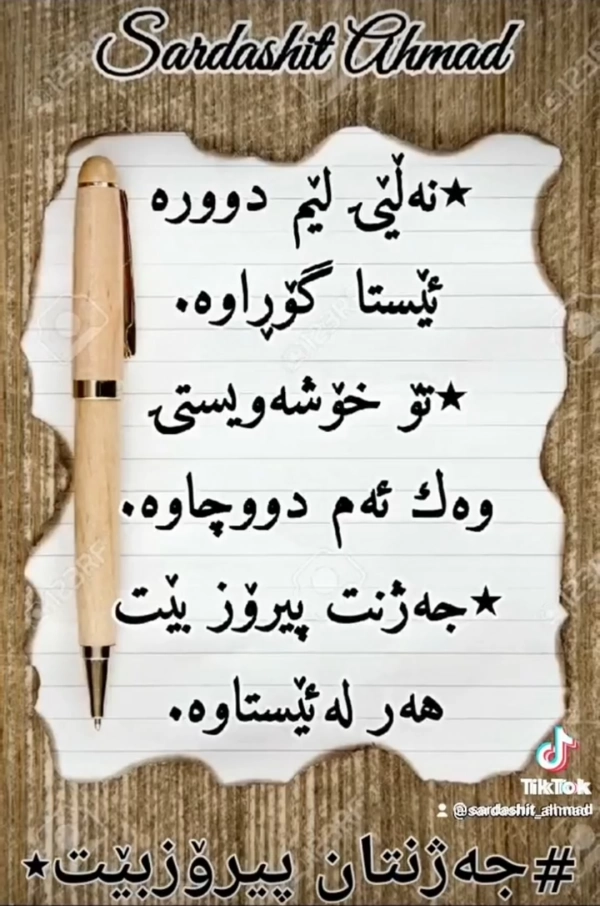 Sardashit Ahmad
★نەڵێی لێم دوورە
ئێستا گۆڕاوە.
★تۆ خۆشەویستی
وەك ئەم دووچاوە.
★جەژنت پیرۆز بێت
هەر لەئێستاوە.
TikTok
@sardashit_ahmad
#جەژنتان پیرۆزبێت★
123RF